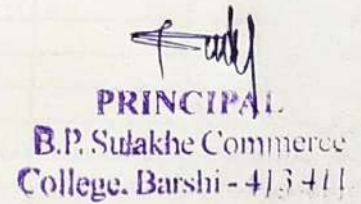 PRINCIPAL
B.P. Sulakhe Commerce
College. Barshi - 413 411